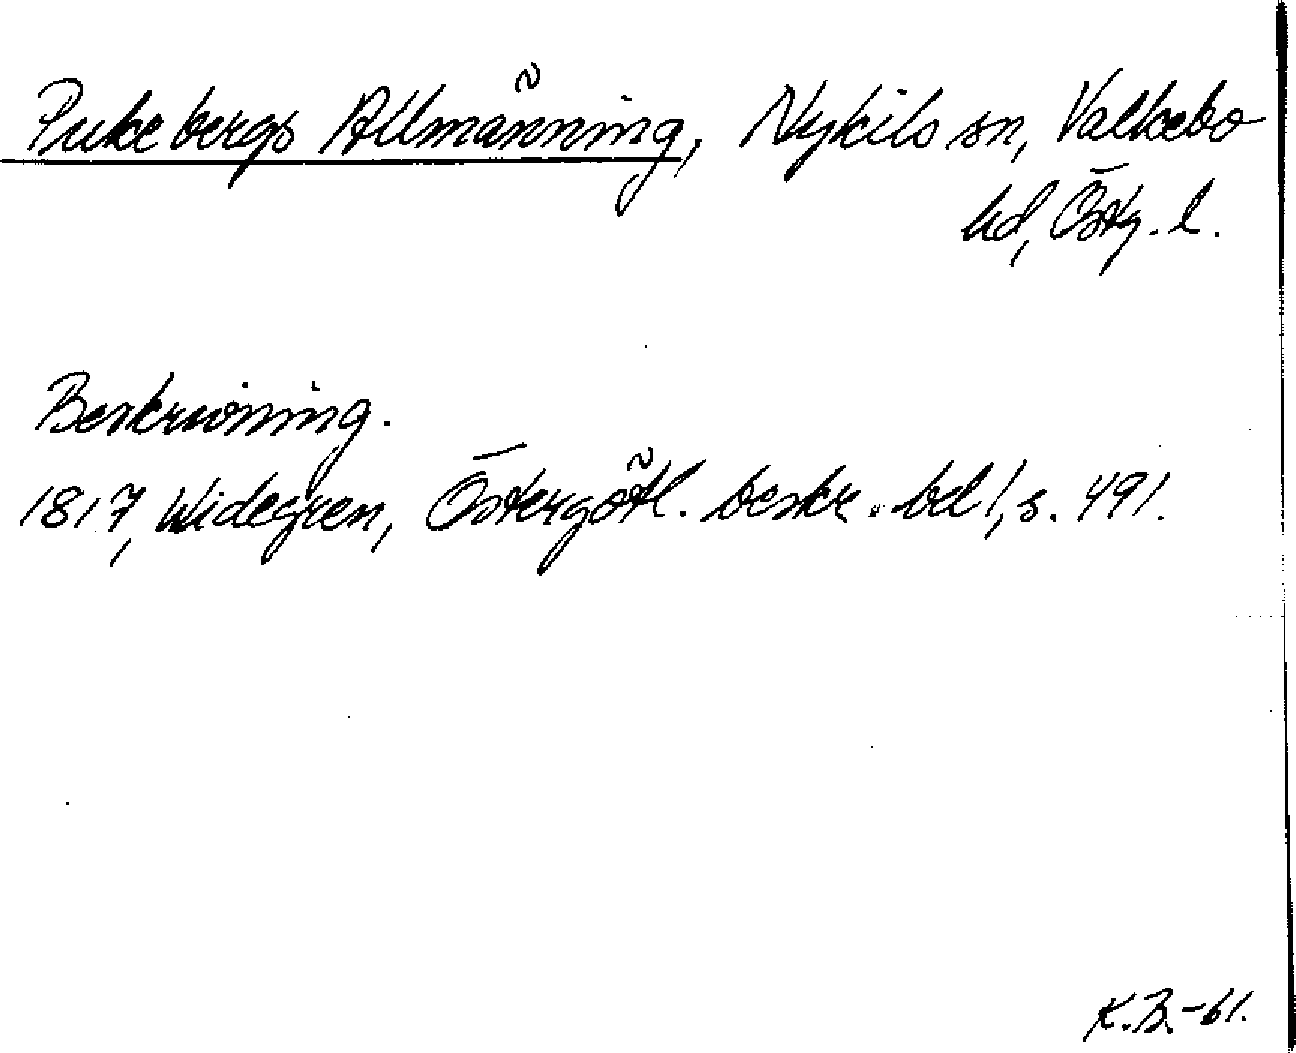 Pukebergs Allmänning, Nykils sn, Valkebo
hd, Östg. l.
Beskrivning.
1817, Widegren, Östergötl. beskr. bd 1, s. 491.
K.B.-61.